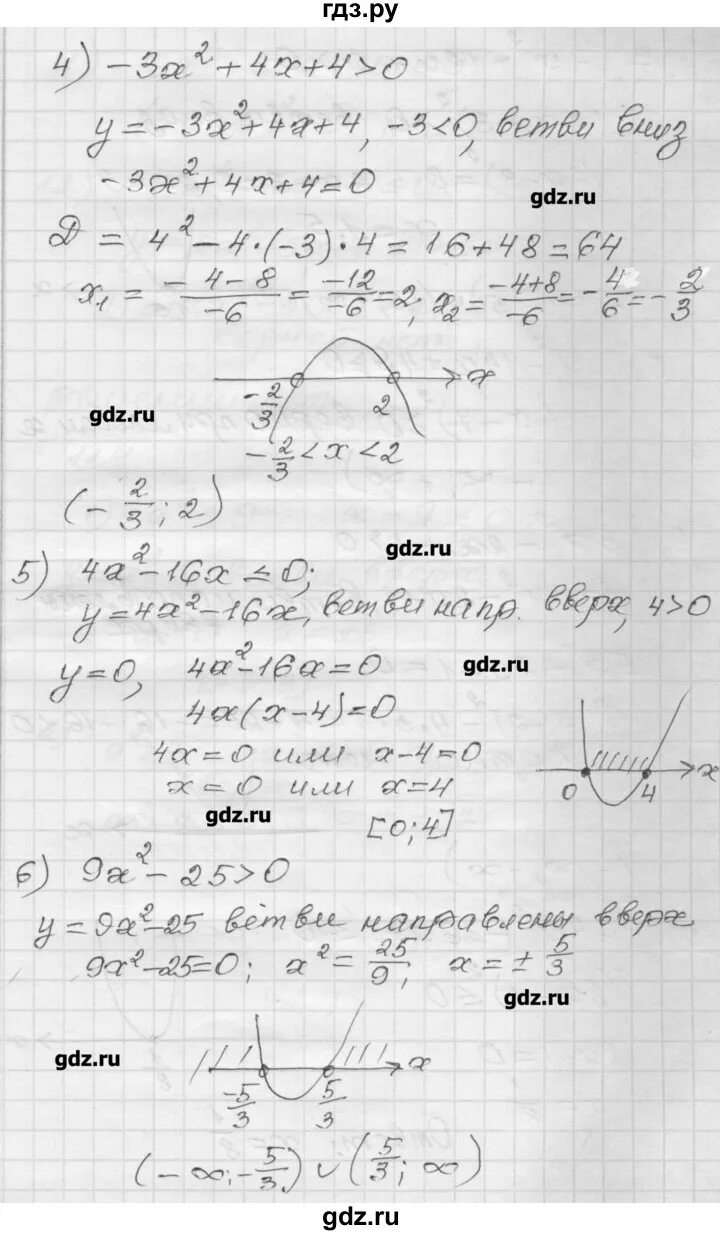 гдз.ру
4) -3x² + 4x + 4 > 0
y = -3x² + 4x + 4, -3 < 0, ветви вниз
-3x² + 4x + 4 = 0
gdz.ru
Д = 4² - 4·(-3)·4 = 16 + 48 = 64
x₁ = (-4-8)/(-6) = (-12)/(-6) = 2; x₂ = (-4+8)/(-6) = -4/6 = -2/3
x
-2/3
2
gdz.ru
-2/3 < x < 2
(-2/3; 2)
gdz.ru
5) 4x² - 16x ≤ 0;
y = 4x² - 16x, ветви напр. вверх, 4 > 0
y = 0, 4x² - 16x = 0
gdz.ru
4x(x - 4) = 0
4x = 0 или x - 4 = 0
x = 0 или x = 4
x
0
4
gdz.ru
[0; 4]
6) 9x² - 25 > 0
y = 9x² - 25 ветви направлены вверх
9x² - 25 = 0; x² = 25/9; x = ± 5/3
gdz.ru
gdz.ru
x
-5/3
5/3
(-∞; -5/3) ∪ (5/3; ∞)
gdz.ru